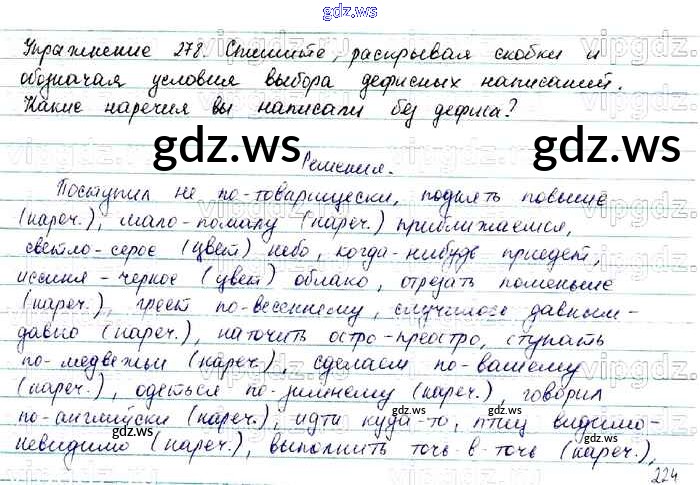 gdz.ws
Упражнение 278. Спишите, раскрывая скобки и
обозначая условия выбора дефисных написаний.
Какие наречия вы написали без дефиса?
gdz.ws gdz.ws
Решения.
Поступил не по-товарищески, поднять повыше
(нареч.), мало-помалу (нареч.) приближаемся,
светло-серое (цвет) небо, когда-нибудь приедет,
иссиня-черное (цвет) облако, отрезать поменьше
(нареч.), греет по-весеннему, случилось давным-
давно (нареч.), наточить остро-преостро, ступать
по-медвежьи (нареч.), сделаем по-вашему
(нареч.), одеться по-зимнему (нареч.), говорил
по-английски (нареч.), идти куда-то, птиц видимо-
невидимо (нареч.), выполнить точь-в-точь (нареч.),
gdz.ws gdz.ws
gdz.ws
224